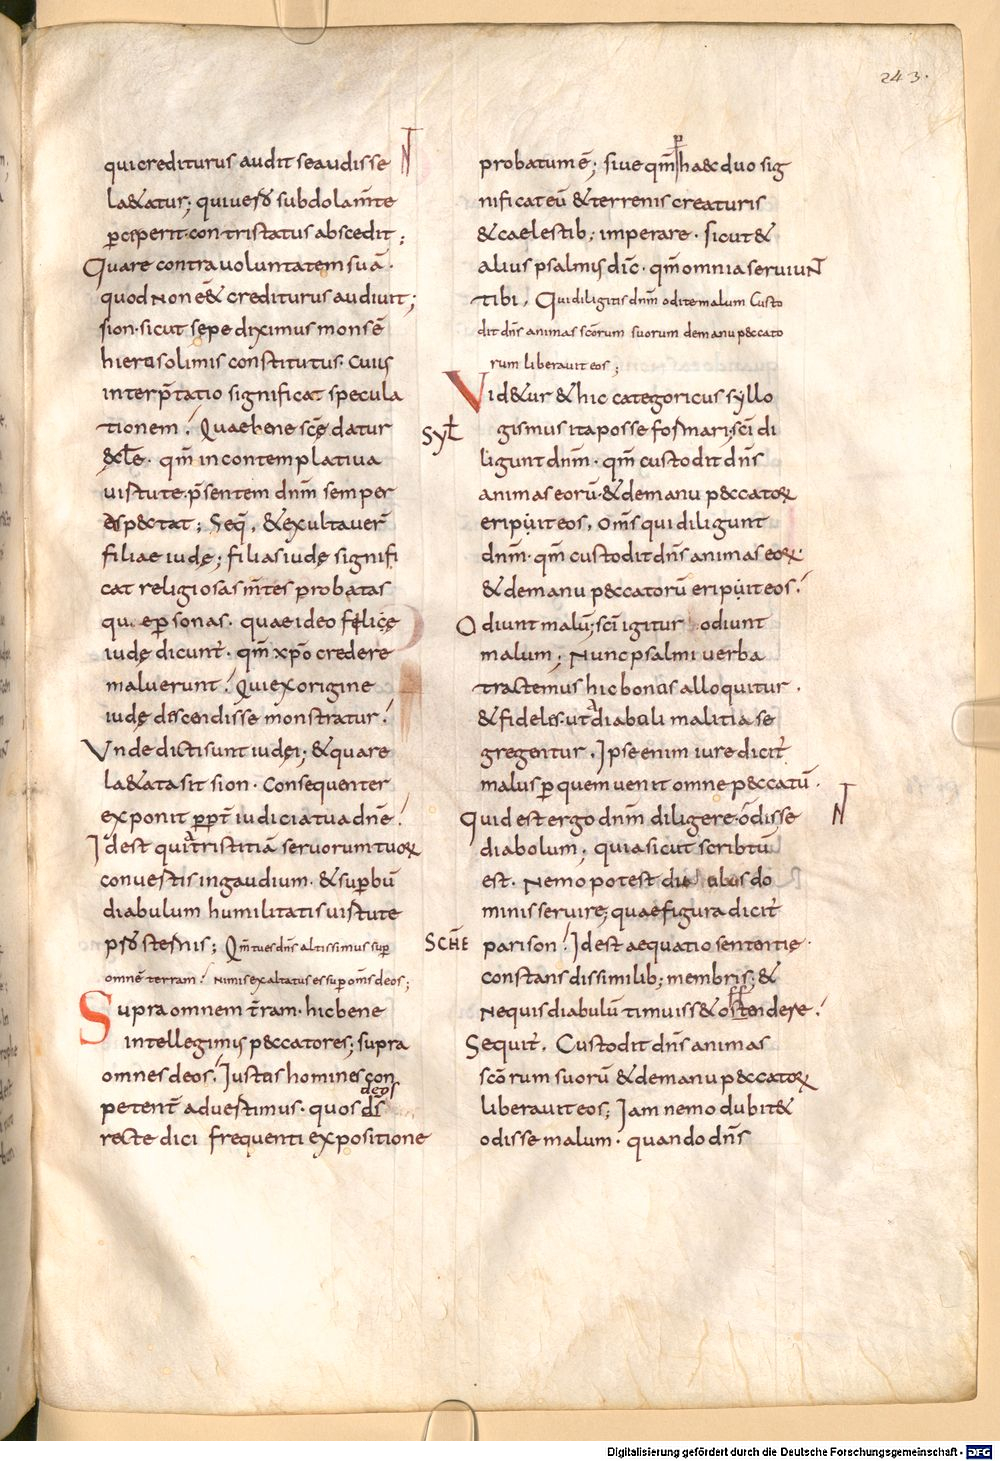 243.
qui crediturus audit se audisse
lætatur; qui uero subdola m̄te
ꝑceperit contristatus abscedit;
Quare contra uoluntatem suā.
quod non eēt crediturus audiuit;
sion. sicut sepe diximus mons ē
hierosolimis constitutus. cuius
interp̄tatio significat specula
tionem! Quae bene scę datur
æcl̄e. qm̄ in contemplatiua
uirtute. p̄sentem dnm̄ semper
expectat; Seq̄. & exultauer̄
filiae iudę; filias iudę signifi
cat religiosas m̄tes probatas
qu. e ꝑsonas. quae ideo felicę
iudę dicunt̄. qm̄ xp̄o credere
maluerunt! Qui ex origine
iudę descendisse monstratur!
Vnde dicti sunt iudęi; & quare
lætata sit sion. Consequenter
exponit ꝓpt̄ iudicia tua dnē!
Id est quia tristitiā seruorum tuoꝝ
conuertis in gaudium. & suꝑbū
diabulum humilitatis uirtute
ꝓsternis; Qm̄ tu es dn̄s altissimus suꝑ
omnē terram! nimis exaltatus es suꝑ om̄s deos;
Supra omnem t̄ram. hic bene
intellegimus peccatores; supra
omnes deos! Iustus homines con
deos
petent̄ aduertimus. quos dī
recte dici frequenti expositione
N
probatum ē; siue qm̄ ꝑ haec duo sig
nificat eū & terrenis creaturis
& caelestib; imperare. sicut &
alius psalmis dic̄. qm̄ omnia seruiunt
tibi. Qui diligitis dnm̄ odite malum Custo
dit dn̄s animas sc̄orum suorum de manu peccato
rum liberauit eos;
Videtur & hic categoricus syllo
gismus ita posse formari; sc̄i di
syl̄
ligunt dnm̄. qm̄ custodit dn̄s
animas eorū. & de manu peccatoꝝ
eripuit eos. Om̄s qui diligunt
dnm̄. qm̄ custodit dn̄s animas eoꝝ.
& de manu peccatorū eripuit eos!
Odiunt malū; sc̄i igitur odiunt
malum; Nunc psalmi uerba
tractemus hic bonus alloquitur.
& fideles ut a diabuli malitia se
gregentur. Ipse enim iure dicit̄
malus ꝑ quem uenit omne peccatū.
Quid est ergo dnm̄ diligere. odisse
N
diabolum; quia sicut scribtū
est. Nemo potest duobus do
minis seruire; quae figura dicit̄
SCHE
parison! Id est aequatio sententię.
constans dissimilib; membris; &
ne quis diabulū timuisset ostendere!
Sequit̄. Custodit dn̄s animas
sc̄orum suorū & de manu peccatoꝝ
liberauit eos; Iam nemo dubitet
odisse malum. quando dn̄s
Digitalisierung gefördert durch die Deutsche Forschungsgemeinschaft - DFG